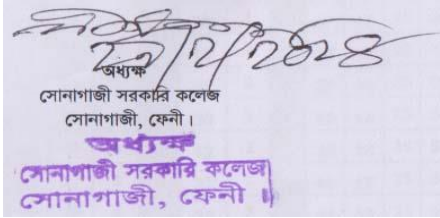 অধ্যক্ষ
সোনাগাজী সরকারি কলেজ
সোনাগাজী, ফেনী।
অধ্যক্ষ
সোনাগাজী সরকারি কলেজ
সোনাগাজী, ফেনী ।